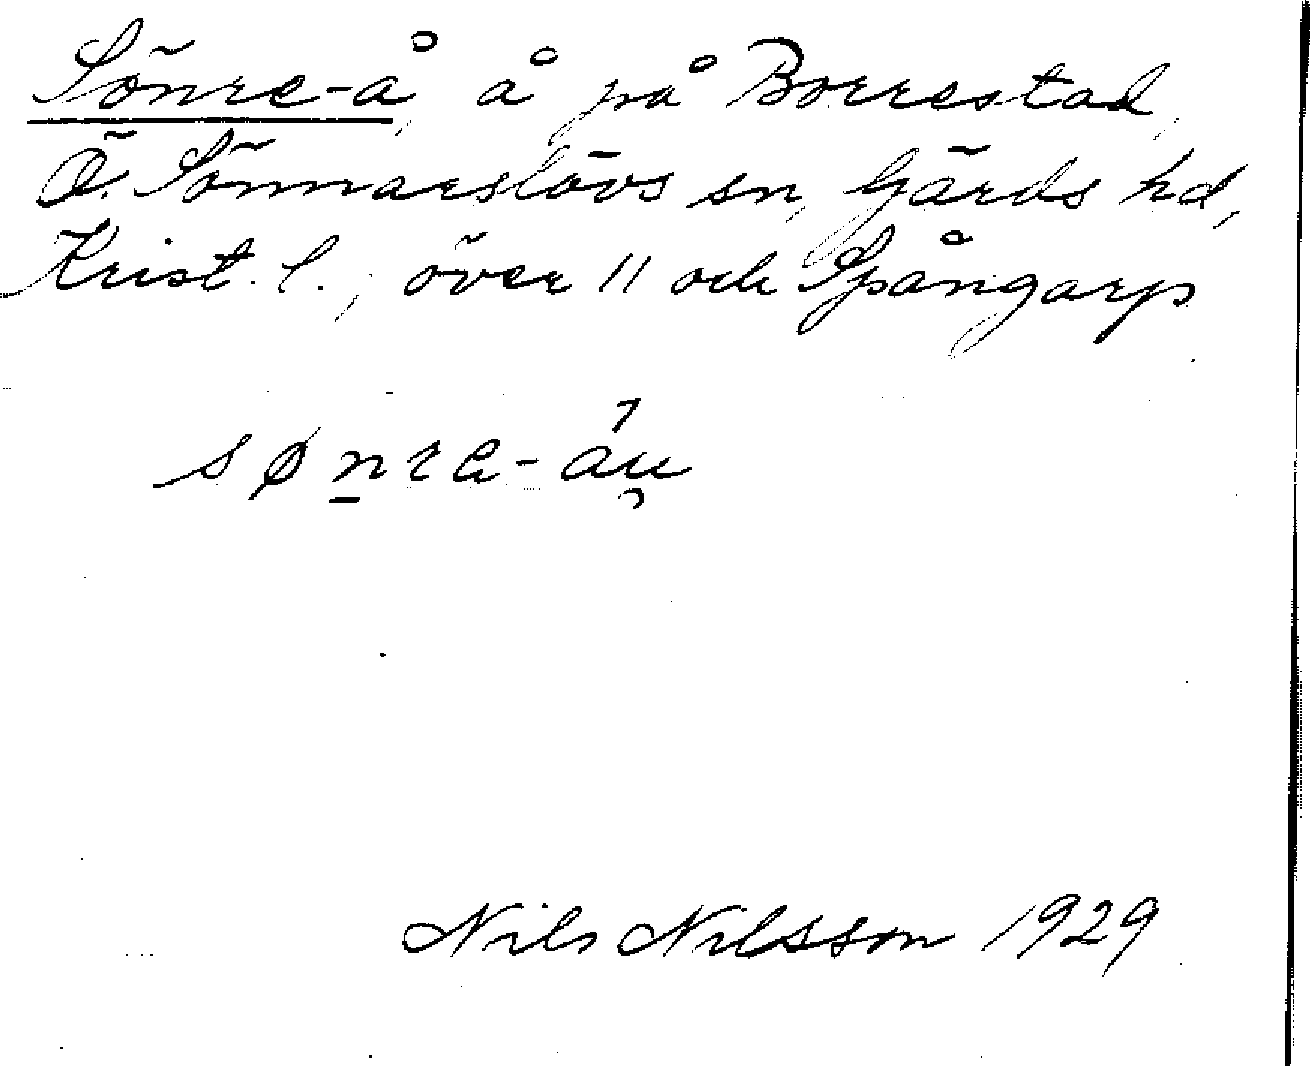 Sönre-å, å på Borrestad,
Ö. Sönnarslövs sn, Gärds hd,
Krist. l.; över 11 och Spångarp
sønra-áu
Nils Nilsson 1929